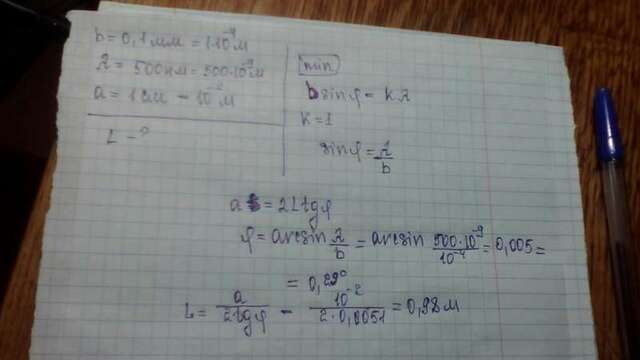 b = 0,1мм = 1·10⁻⁴м
λ = 500нм = 500·10⁻⁹м
a = 1см = 10⁻²м
L - ?
min
b sinφ = kλ
k = 1
sinφ = λ/b
a = 2Ltgφ
φ = arcsin λ/b = arcsin 500·10⁻⁹/10⁻⁴ = 0,005 =
= 0,29°
L = a/2tgφ = 10⁻²/2·0,0051 = 0,98м